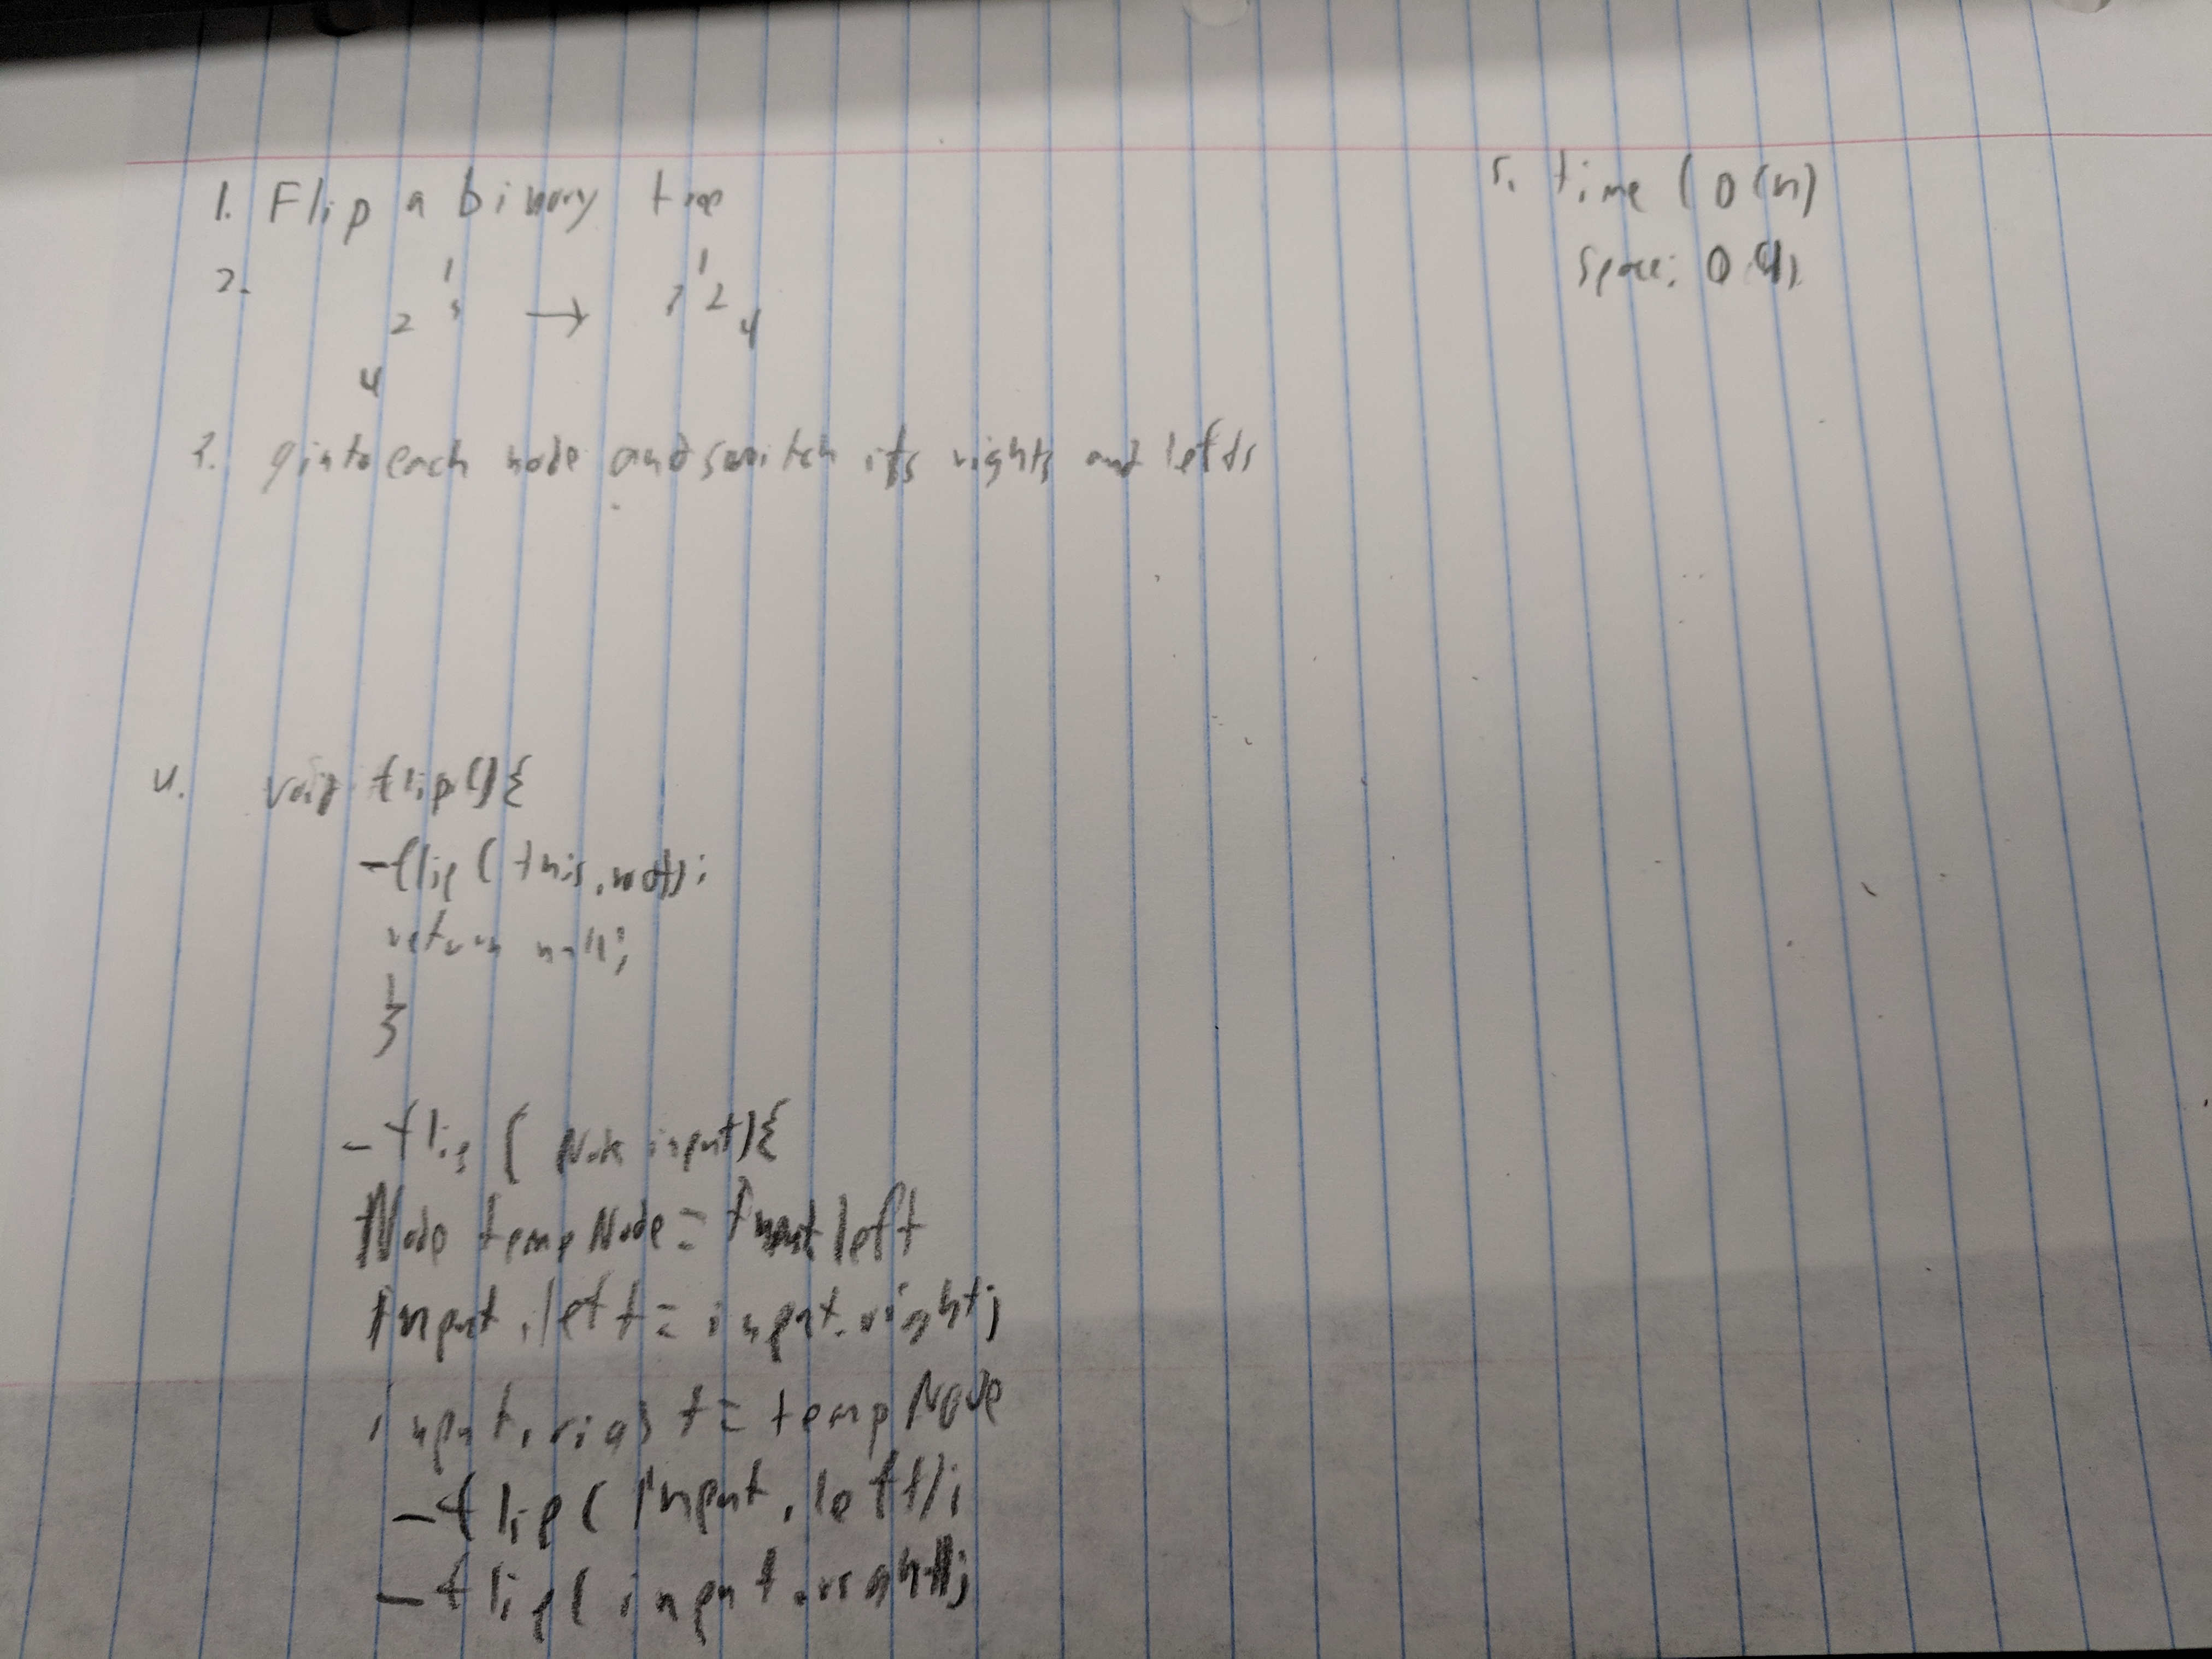 1. Flip a binary tree
2.
1
2 3
4
→
1
3 2
4
3. g into each node and switch its rights and lefts
4. void flip(){
_flip(this.root);
return null;
}
_flip(Node input){
Node tempNode = input left
input.left = input.right;
input.right = tempNode
_flip(input.left);
_flip(input.right);
5. time ( O(n)
space: O(1)